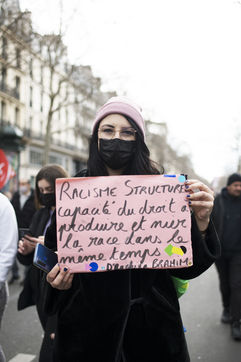 RACISME STRUCTUREL
capacité du droit à
produire et nier
la race dans le
même temps -